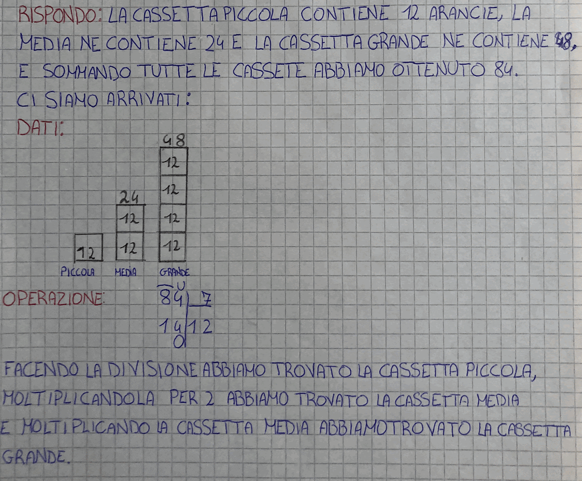 RISPONDO: LA CASSETTA PICCOLA CONTIENE 12 ARANCIE, LA
MEDIA NE CONTIENE 24 E LA CASSETTA GRANDE NE CONTIENE 48,
E SOMMANDO TUTTE LE CASSETE ABBIAMO OTTENUTO 84.
CI SIAMO ARRIVATI:
DATI:
48
12
24 12
12 12
12 12 12
PICCOLA MEDIA GRANDE
OPERAZIONE 84 7
14 12
0
FACENDO LA DIVISIONE ABBIAMO TROVATO LA CASSETTA PICCOLA,
MOLTIPLICANDOLA PER 2 ABBIAMO TROVATO LA CASSETTA MEDIA
E MOLTIPLICANDO LA CASSETTA MEDIA ABBIAMO TROVATO LA CASSETTA
GRANDE.